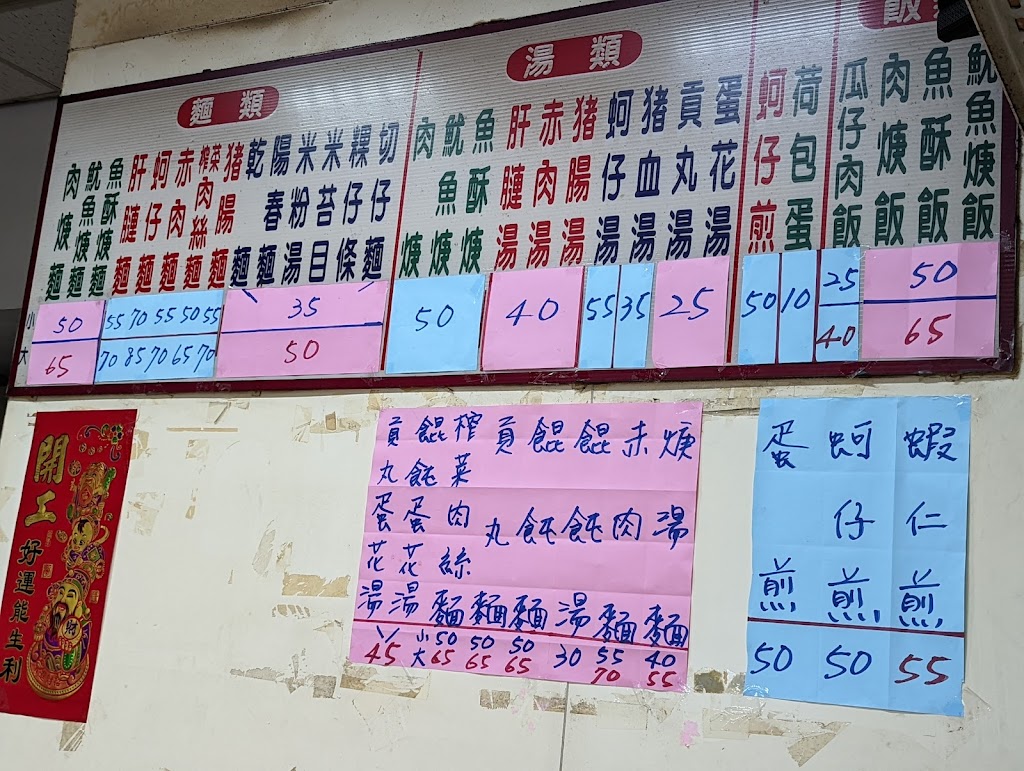 麵類
肉焿麵
魷魚焿麵
魚酥焿麵
肝腱麵
蚵仔麵
赤肉麵
榨菜肉絲麵
豬腸麵
乾麵
陽春麵
米粉湯
米苔目
粿仔條
切仔麵
小 50 55 70 55 50 55 35
大 65 70 85 70 65 70 50
湯類
肉焿
魷魚焿
魚酥焿
肝腱湯
赤肉湯
豬腸湯
蚵仔湯
豬血湯
貢丸湯
蛋花湯
50 40 55 35 25
蚵仔煎
荷包蛋
50 10
飯
瓜仔肉飯
肉焿飯
魚酥飯
魷魚焿飯
25 50
40 65
開工
好運能生利
貢丸蛋花湯
餛飩蛋花湯
榨菜肉絲麵
貢丸麵
餛飩麵
餛飩湯
赤肉麵
焿湯麵
45 小 50 50 50 30 55 40
大 65 65 65 70 55
蛋煎
蚵仔煎
蝦仁煎
50 50 55